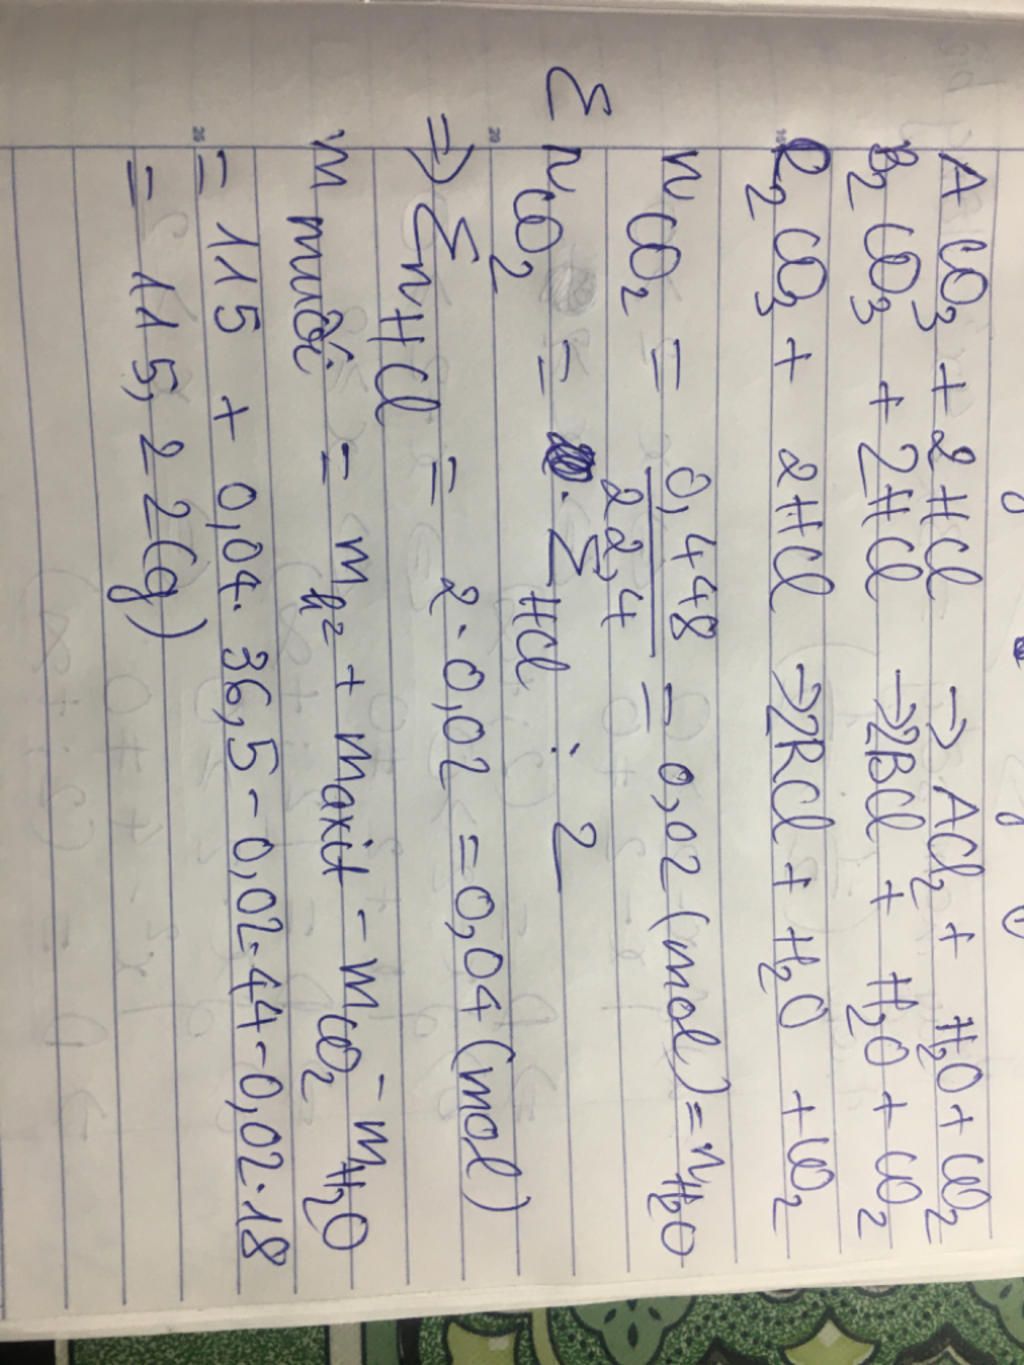 ACO₃ + 2HCl → ACl₂ + H₂O + CO₂
B₂CO₃ + 2HCl → 2BCl + H₂O + CO₂
R₂CO₃ + 2HCl → 2RCl + H₂O + CO₂
n CO₂ = 0,448 / 22,4 = 0,02 (mol) = n H₂O
Σ n CO₂ = Σ HCl : 2
⇒ Σ n HCl = 2 · 0,02 = 0,04 (mol)
m muối = m h² + m axit - m CO₂ - m H₂O
= 115 + 0,04 · 36,5 - 0,02 · 44 - 0,02 · 18
= 115,22 (g)